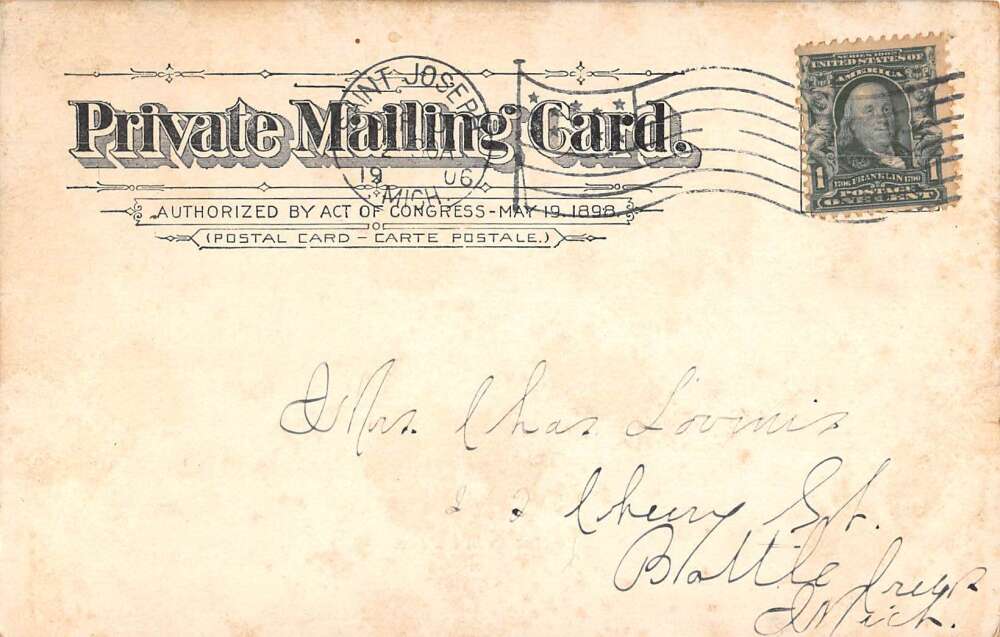 Private Mailing Card.
AUTHORIZED BY ACT OF CONGRESS - MAY 19, 1898.
(POSTAL CARD - CARTE POSTALE.)
SAINT JOSEPH
19 06
MICH.
SERIES 1902
UNITED STATES OF
AMERICA
1 FRANKLIN 1
POSTAGE
ONE CENT
Mrs. Chas.
Cherry St.
Battle Creek
Mich.